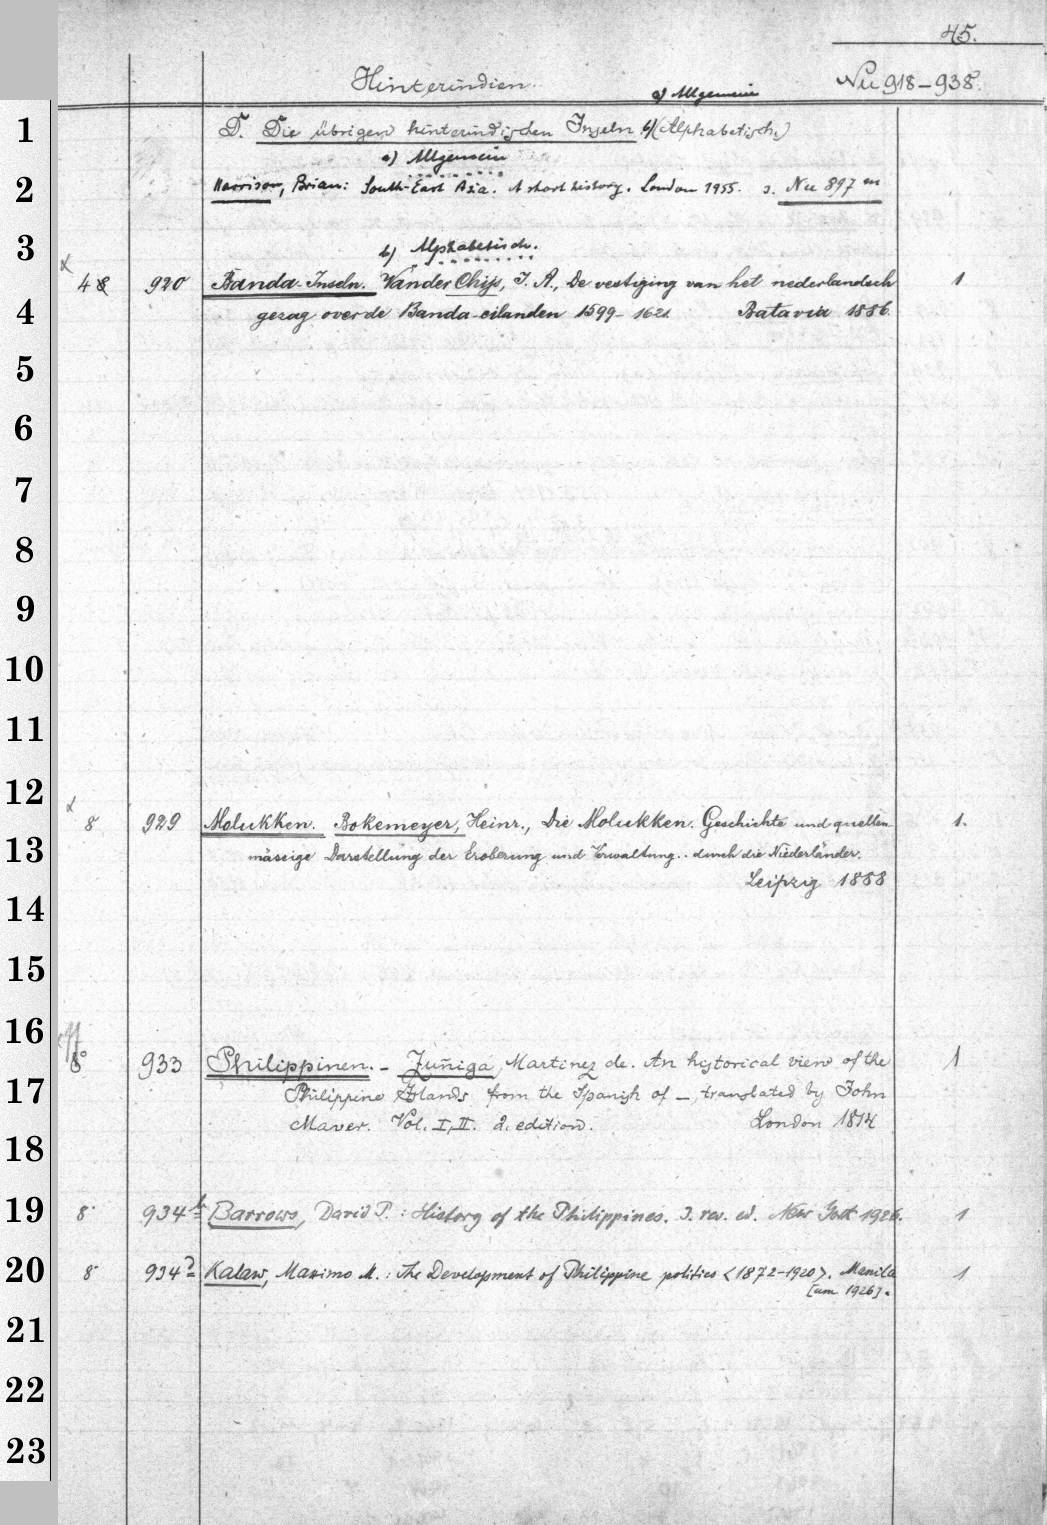 45.
Hinterindien. Nu 918-938.
a) Allgemein
1 D. Die übrigen hinterindischen Inseln b) (Alphabetisch)
a) Allgemein
2 Harrison, Brian: South-East Asia. A short history. London 1955. s. Nu 897 m
3 b) Alphabetisch.
48 920 Banda-Inseln. Van der Chijs, J. A., De vestiging van het nederlandsch 1
4 gezag over de Banda-eilanden 1599-1621 Batavia 1886.
5
6
7
8
9
10
11
12
8 929 Molukken. Bokemeyer, Heinr., Die Molukken. Geschichte und quellen- 1.
13 mässige Darstellung der Eroberung und Verwaltung.. durch die Niederländer.
Leipzig 1888
14
15
16
8° 933 Philippinen. - Zuñiga, Martinez de. An historical view of the 1
17 Philippine Islands from the Spanish of —, translated by John
Maver. Vol. I, II. 2. edition. London 1814
18
19 8° 934 b Barrows, David P.: History of the Philippines. 3. rev. ed. New York 1926. 1
20 8° 934 Kalaw, Maximo M.: The Development of Philippine politics <1872-1920>. Manila 1
[um 1926].
21
22
23